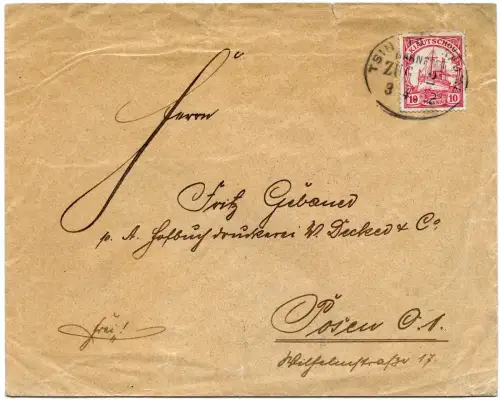 KIAUTSCHOU
TSIN
BAHNPOST
ZUG
3
10 10
Herrn
Fritz Gebauer
p. A. Hofbuchdruckerei W. Decker & Co
Posen O.1.
Wilhelmstraße 17.
frei!